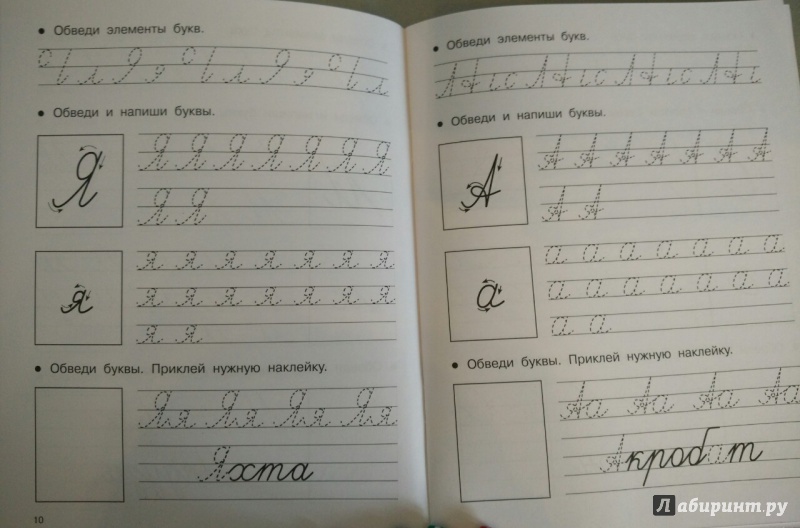 Обведи элементы букв.
Обведи и напиши буквы.
Я
Я Я Я Я Я Я Я
Я Я
я
я я я я я я я
я я я я я я я
я я
Обведи буквы. Приклей нужную наклейку.
Яя Яя Яя Яя
Яхта
10
Обведи элементы букв.
Обведи и напиши буквы.
А
А А А А А А А
А А
а
а а а а а а а
а а а а а а а
а а
Обведи буквы. Приклей нужную наклейку.
Аа Аа Аа Аа
Акробат
Лабиринт.ру